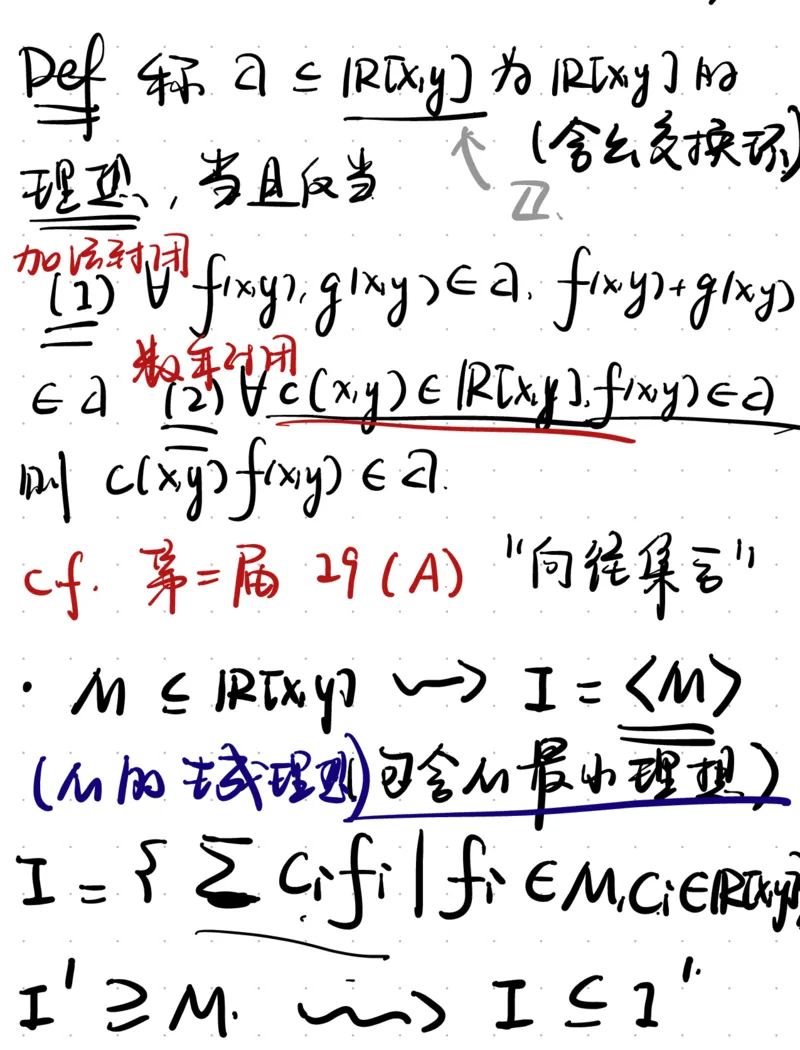 Def 称 a ⊆ ℝ[x,y] 为 ℝ[x,y] 的
(含幺交换环)
理想, 当且仅当
ℤ.
加法封闭
(1) ∀ f(x,y), g(x,y) ∈ a, f(x,y)+g(x,y)
数乘封闭
∈ a (2) ∀ c(x,y) ∈ ℝ[x,y], f(x,y) ∈ a
则 c(x,y) f(x,y) ∈ a.
cf. 第二届 29(A) "向径集合"
· M ⊆ ℝ[x,y] ⇝ I = ⟨M⟩
(M的生成理想)(包含M最小理想)
I = { Σ cᵢfᵢ | fᵢ ∈ M, cᵢ ∈ ℝ[x,y]
I' ⊇ M. ⇝ I ⊆ I'.